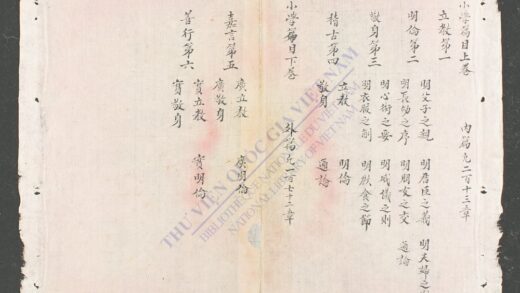 小學篇目上卷 內篇凡二百十三章
立教第一
明倫第二 明父子之親 明君臣之義 明夫婦之
明長幼之序 明朋友之交 通論
敬身第三 明心術之要 明威儀之則
明衣服之制 明飲食之節
稽古第四 立教 明倫
敬身 通論
小學篇目下卷 外篇凡一百七十二章
嘉言第五 廣立教 廣明倫
廣敬身
善行第六 實立教 實明倫
實敬身
THƯ VIỆN QUỐC GIA VIỆT NAM
BIBLIOTHÈQUE NATIONALE DU VIETNAM
NATIONAL LIBRARY OF VIETNAM